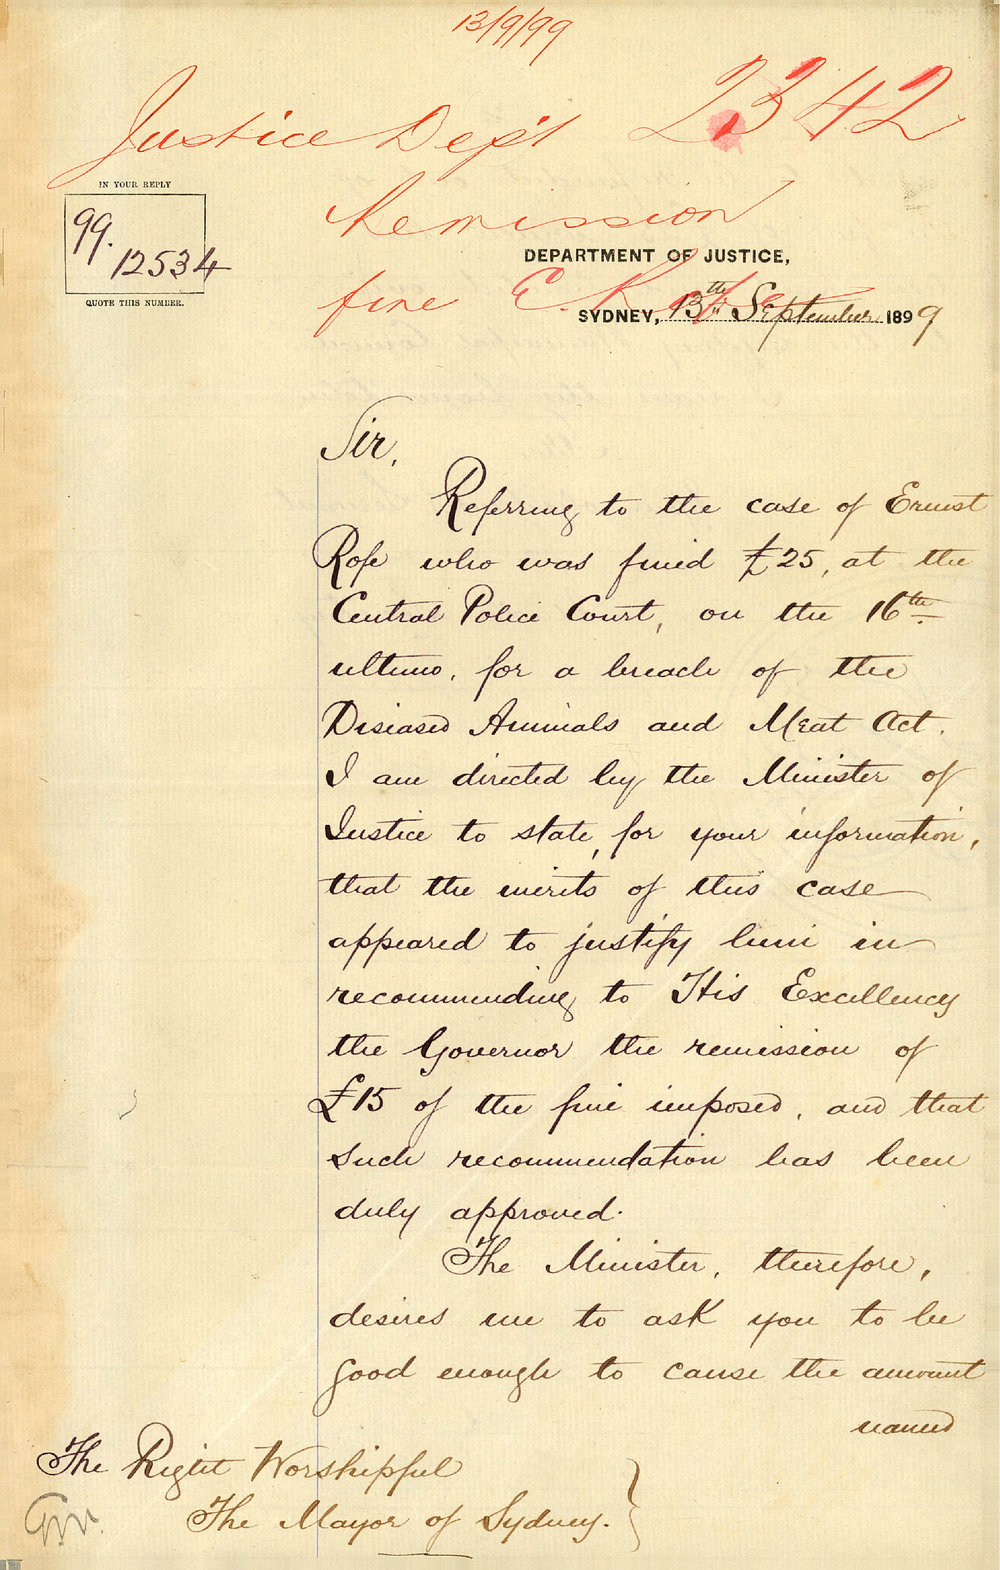 13/9/99
Justice Dep't 2342
Remission
fine E.
IN YOUR REPLY
99.
12534
QUOTE THIS NUMBER.
DEPARTMENT OF JUSTICE,
SYDNEY, 13th September 1899
Sir,
Referring to the case of Ernest
Rofe who was fined £25, at the
Central Police Court, on the 16th
ultimo, for a breach of the
Diseased Animals and Meat Act.
I am directed by the Minister of
Justice to state, for your information,
that the merits of this case
appeared to justify him in
recommending to His Excellency
the Governor the remission of
£15 of the fine imposed, and that
such recommendation has been
duly approved.
The Minister, therefore,
desires me to ask you to be
good enough to cause the amount
named
The Right Worshipful
The Mayor of Sydney.